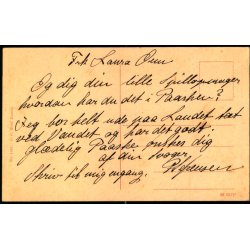 Frk Laura Orm
Og dig din lille Spilloppmager
hvordan har du det i Paasken?
Jeg bor helt ude paa Landet tæt
ved Vandet og har det godt,
glædelig Paaske ønskes dig
af din svoger
Skriv til mig engang.